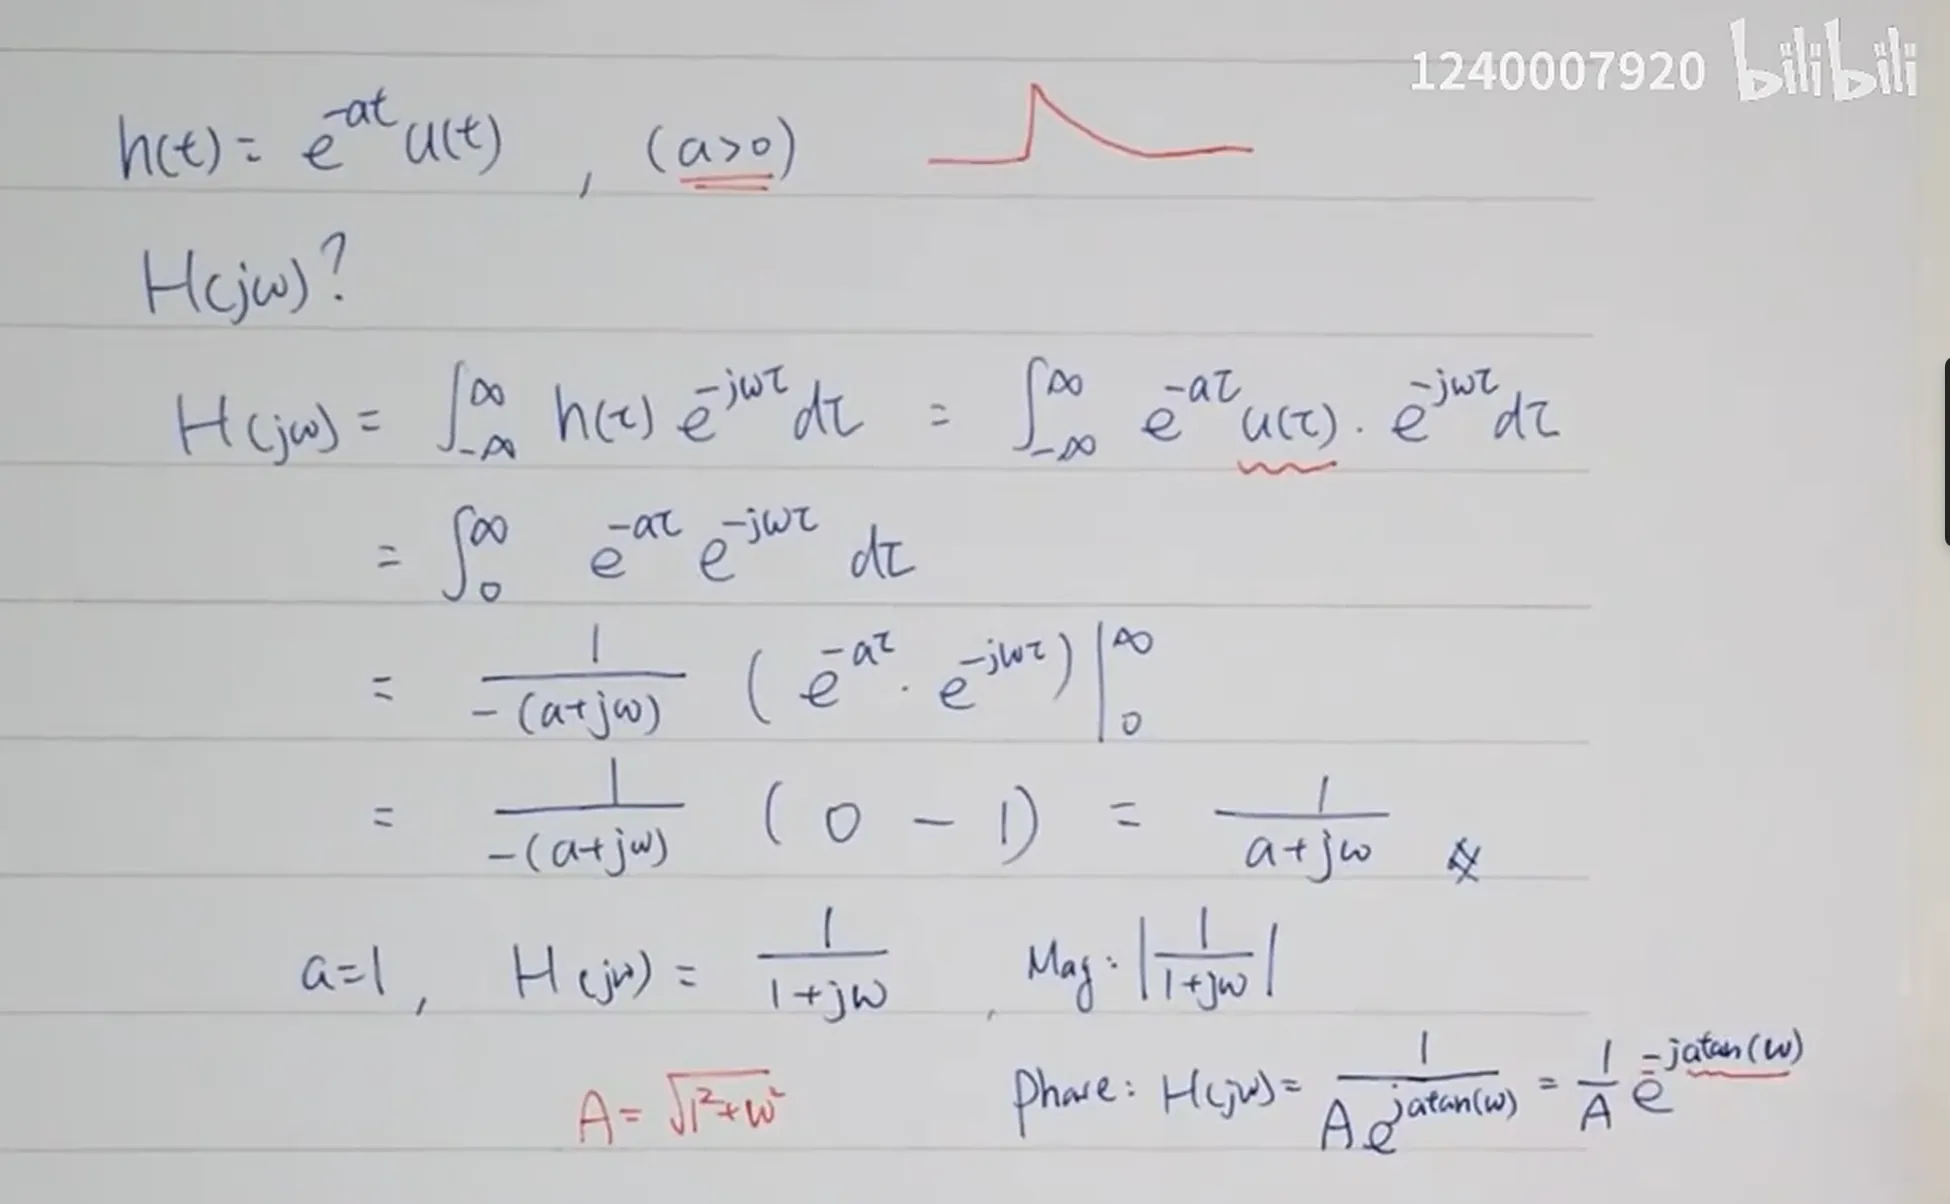 1240007920 bilibili
h(t) = e^{-at} u(t) , (a>0)
H(jω)?
H(jω) = ∫_{-∞}^{∞} h(τ) e^{-jωτ} dτ = ∫_{-∞}^{∞} e^{-aτ} u(τ) · e^{-jωτ} dτ
= ∫_0^∞ e^{-aτ} e^{-jωτ} dτ
= 1/(-(a+jω)) (e^{-aτ} · e^{-jωτ}) |_0^∞
= 1/(-(a+jω)) (0 - 1) = 1/(a+jω)
a=1, H(jω) = 1/(1+jω) , Mag: |1/(1+jω)|
A = √(1²+ω²) Phase: H(jω) = 1/(A e^{jatan(ω)}) = 1/A e^{-jatan(ω)}